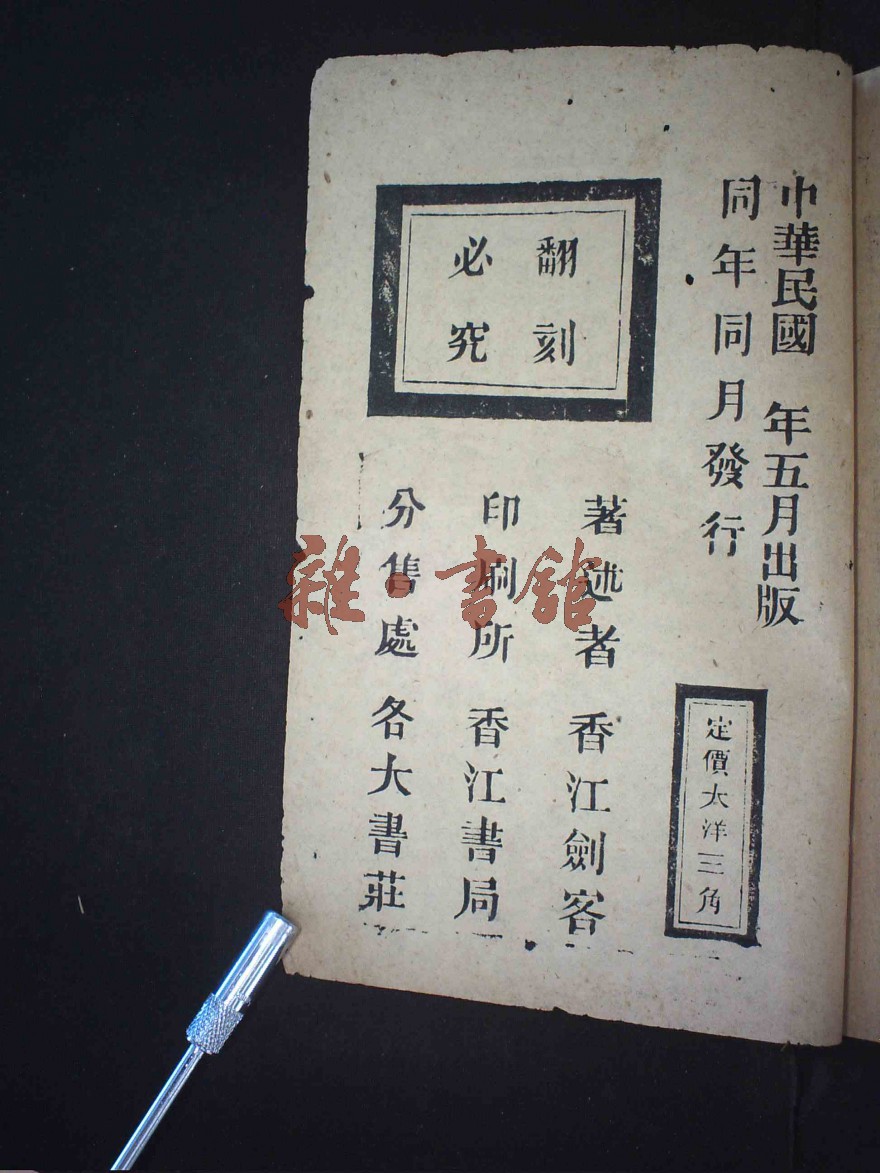 中華民國　年五月出版
同年同月發行
定價大洋三角
翻刻
必究
著述者　香江劍客
印刷所　香江書局
分售處　各大書莊
雜·書館